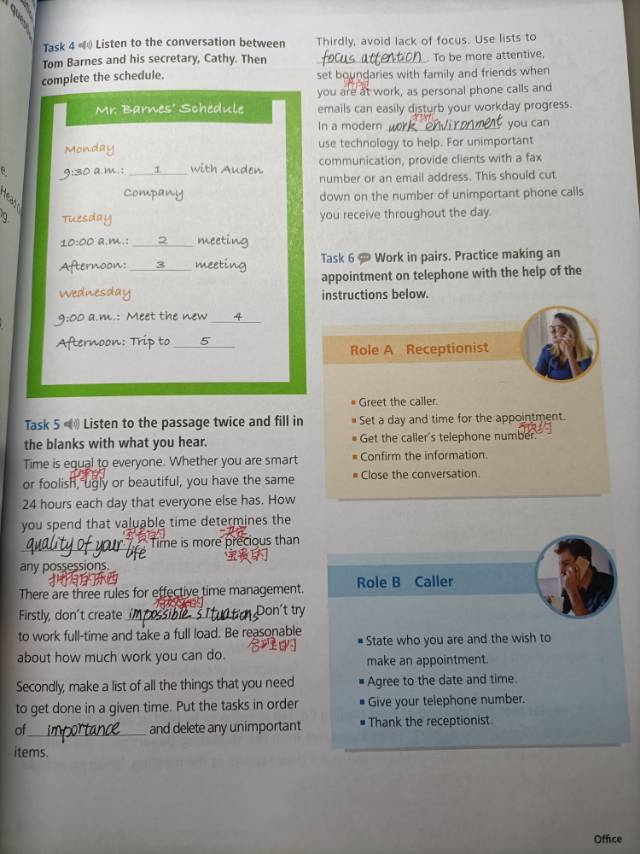 Task 4 Listen to the conversation between
Tom Barnes and his secretary, Cathy. Then
complete the schedule.
Mr. Barnes' Schedule
Monday
9:30 a.m.: 1 with Auden
Company
Tuesday
10:00 a.m.: 2 meeting
Afternoon: 3 meeting
Wednesday
9:00 a.m.: Meet the new 4
Afternoon: Trip to 5
Task 5 Listen to the passage twice and fill in
the blanks with what you hear.
Time is equal to everyone. Whether you are smart
平等的
or foolish, ugly or beautiful, you have the same
24 hours each day that everyone else has. How
you spend that valuable time determines the
宝贵的 决定
quality of your life. Time is more precious than
宝贵的
any possessions.
拥有的东西
There are three rules for effective time management.
有效的
Firstly, don't create impossible situations. Don't try
to work full-time and take a full load. Be reasonable
合理的
about how much work you can do.
Secondly, make a list of all the things that you need
to get done in a given time. Put the tasks in order
of importance and delete any unimportant
items.
Thirdly, avoid lack of focus. Use lists to
focus attention. To be more attentive,
set boundaries with family and friends when
you are at work, as personal phone calls and
emails can easily disturb your workday progress.
In a modern work environment you can
use technology to help. For unimportant
communication, provide clients with a fax
number or an email address. This should cut
down on the number of unimportant phone calls
you receive throughout the day.
Task 6 Work in pairs. Practice making an
appointment on telephone with the help of the
instructions below.
Role A Receptionist
Greet the caller.
Set a day and time for the appointment.
预约
Get the caller's telephone number.
Confirm the information.
Close the conversation.
Role B Caller
State who you are and the wish to
make an appointment.
Agree to the date and time.
Give your telephone number.
Thank the receptionist.
Office